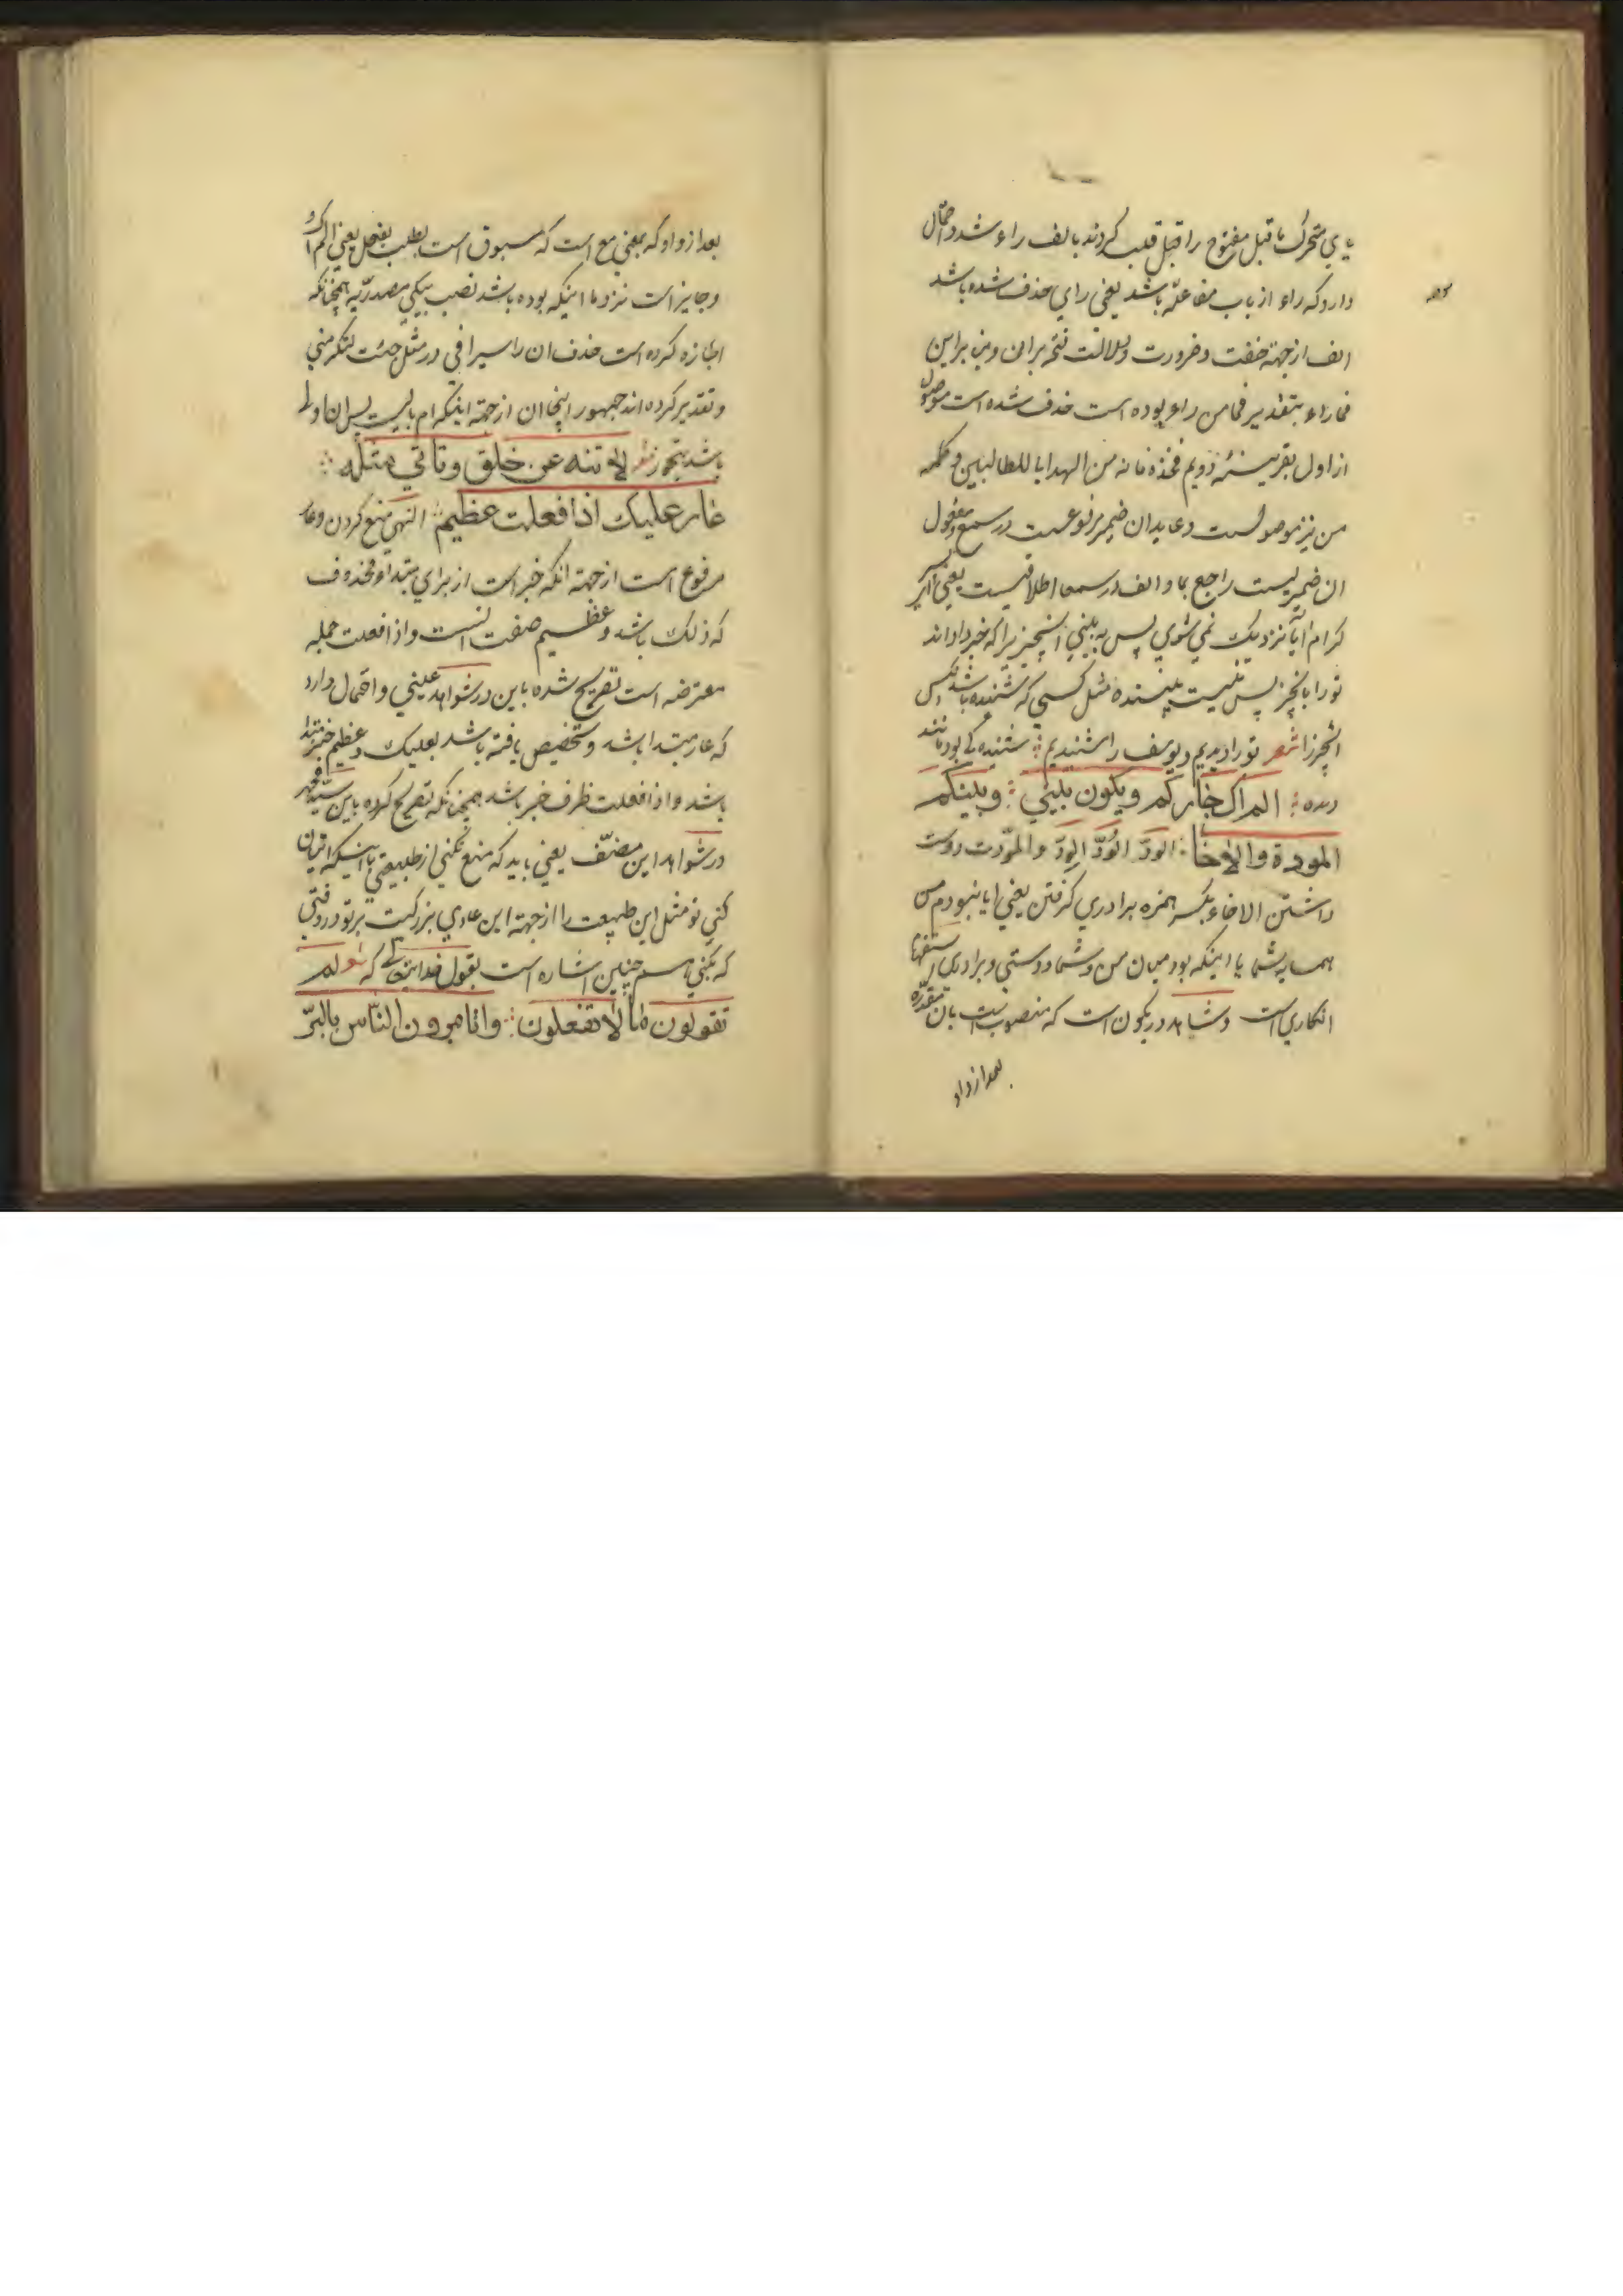 یاي متحرک ماقبل مفتوح را قبل قلب کردند بالف راء شد واحتمال
دارد که راء از باب مفاعله باشد یعني راي حذف شده باشد
الف از جهة خفت وضرورت ودلالت فتحه بران وبنا براین
فماراء بتقدیر فما من راء بوده است حذف شده است موصول
از اول بقرینهٔ دویم فخذه فانه من الهدایا للطالبین وکلمه
من نیز موصولست وعاید ان ضمیر مرفوعست در سمع ومفعول
ان ضمیریست راجع بما والف در سمعا اطلاقیست یعني اي پسر
کرام ایا نزدیک نمي شوي پس به بیني انچیز را که خبر داده اند
تو را بانچیز پس نیست بیننده مثل کسي که شنیده باشد
انچیز را شعر تو را دیدیم ویوسف را شنیدیم شنیده کي بود مانند
دیده الم اک جارکم ویکون بیني وبینکم
المودة والاخا الود الود الود والمودت دوست
داشتن الاخاء بکسر همزه برادري گرفتن یعني ایا نبودم من
همسایه شما با اینکه بود میان من وشما دوستي وبرادري استفهام
انکاري است وشاهد در یکون است که منصوبست بان مقدره
بعد از واو
بعد از واو که بمعني مع است که مسبوق است بطلب بفعل یعني الم اک
وجایز است نزد ما اینکه بوده باشد نصب بیکي مصدریه همچنانکه
اجازه کرده است حذف ان را سیرافي در مثل جئت لتکرمني
وتقدیر کرده اند جمهور اینجا ان از جهة اینکه ام بابست پس ان اولي
باشد بتجوز شعر لا تنه عن خلق وتاتي مثله
عار علیک اذا فعلت عظیم النهي منع کردن وعار
مرفوع است از جهة انکه خبر است از براي مبتداء محذوف
که ذلک باشد وعظیم صفت انست واذا فعلت جمله
معترضه است تصریح شده باین در شواهد عیني واحتمال دارد
که عار مبتدا باشد وتخصیص یافته باشد بعلیک وعظیم خبر مبتدا
باشد واذا فعلت ظرف خبر باشد همچنانکه تصریح کرده باین سید محمد
در شواهد ابن مصنف یعني باید که منع نکني از طبیعتي با اینکه اتیان
کني تو مثل این طبیعت را از جهة این عادي بزرگیست بر تو در وقتي
که بکني همچنین اشاره است بقول خداینعالي که لم
تقولون ما لا تفعلون واتامرون الناس بالبر